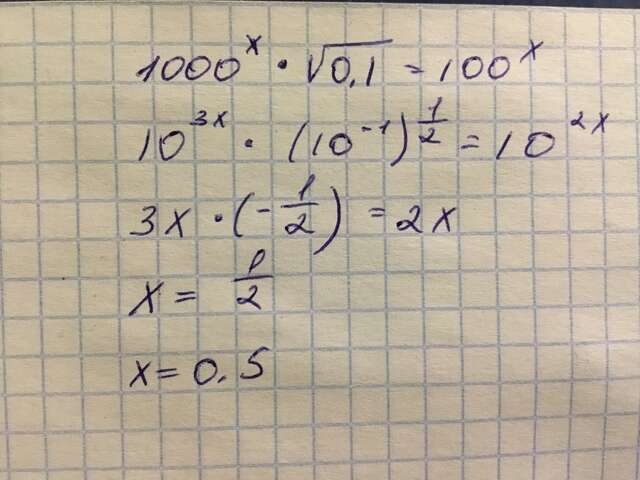 1000^x · √0,1 = 100^x
10^3x · (10^-1)^1/2 = 10^2x
3x · (-1/2) = 2x
x = 1/2
x = 0.5